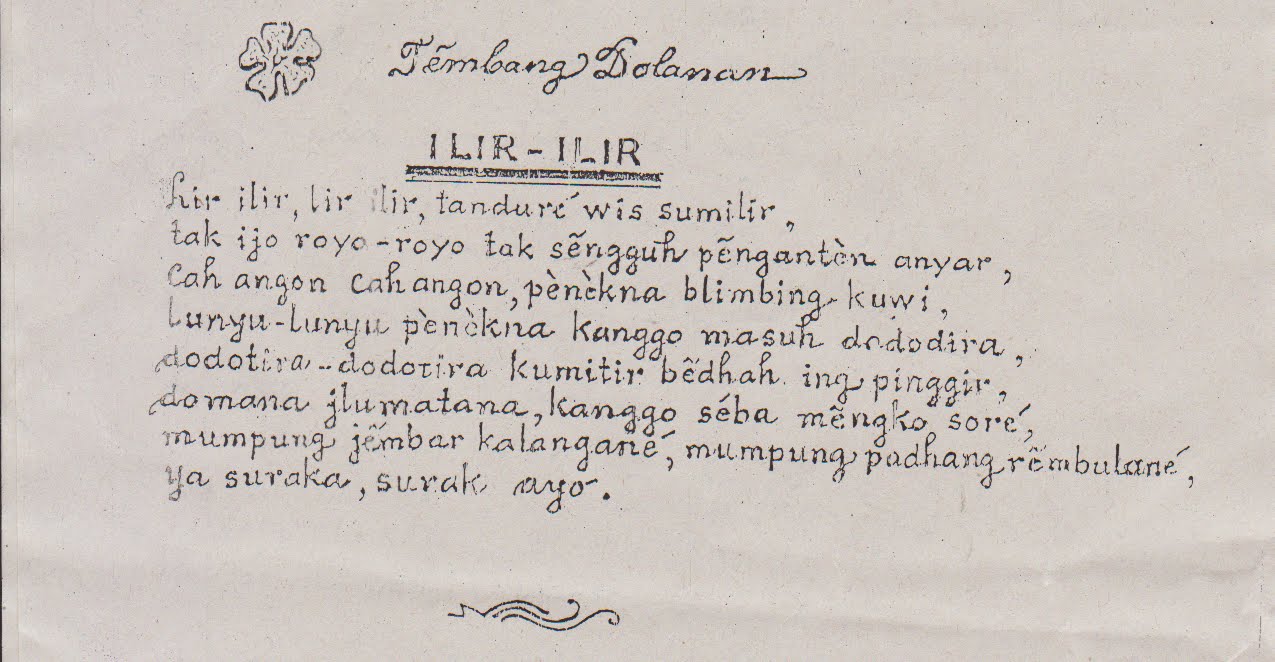 Tẽmbang Dolanan
ILIR - ILIR
Lir ilir, lir ilir, tanduré wis sumilir,
tak ijo royo-royo tak sẽngguh pẽngantèn anyar,
cah angon cah angon, pènèkna blimbing kuwi,
lunyu-lunyu pènèkna kanggo masuh dododira,
dodotira-dodotira kumitir bẽdhah ing pinggir,
domana jlumatana, kanggo séba mẽngko soré,
mumpung jẽmbar kalangané, mumpung padhang rẽmbulané,
ya suraka, surak ayo.